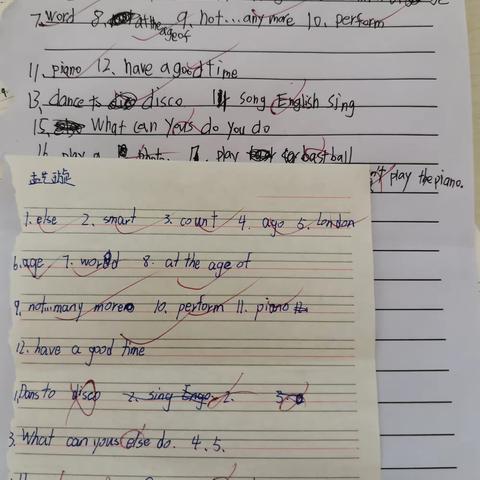 7. word 8. at the age of 9. not...any more 10. perform
11. piano 12. have a good time
13. dance to disco 14 song English sing
15. What can yous do you do
16. play a photo. 17. play basball
play the piano.
1. else 2. smart 3. count 4. ago 5. London
6. age 7. world 8. at the age of
9. not...many more 10. perform 11. piano
12. have a good time
1. Dans to disco 2. sing Engo 2. 3.
3. What can yous else do. 4. 5.